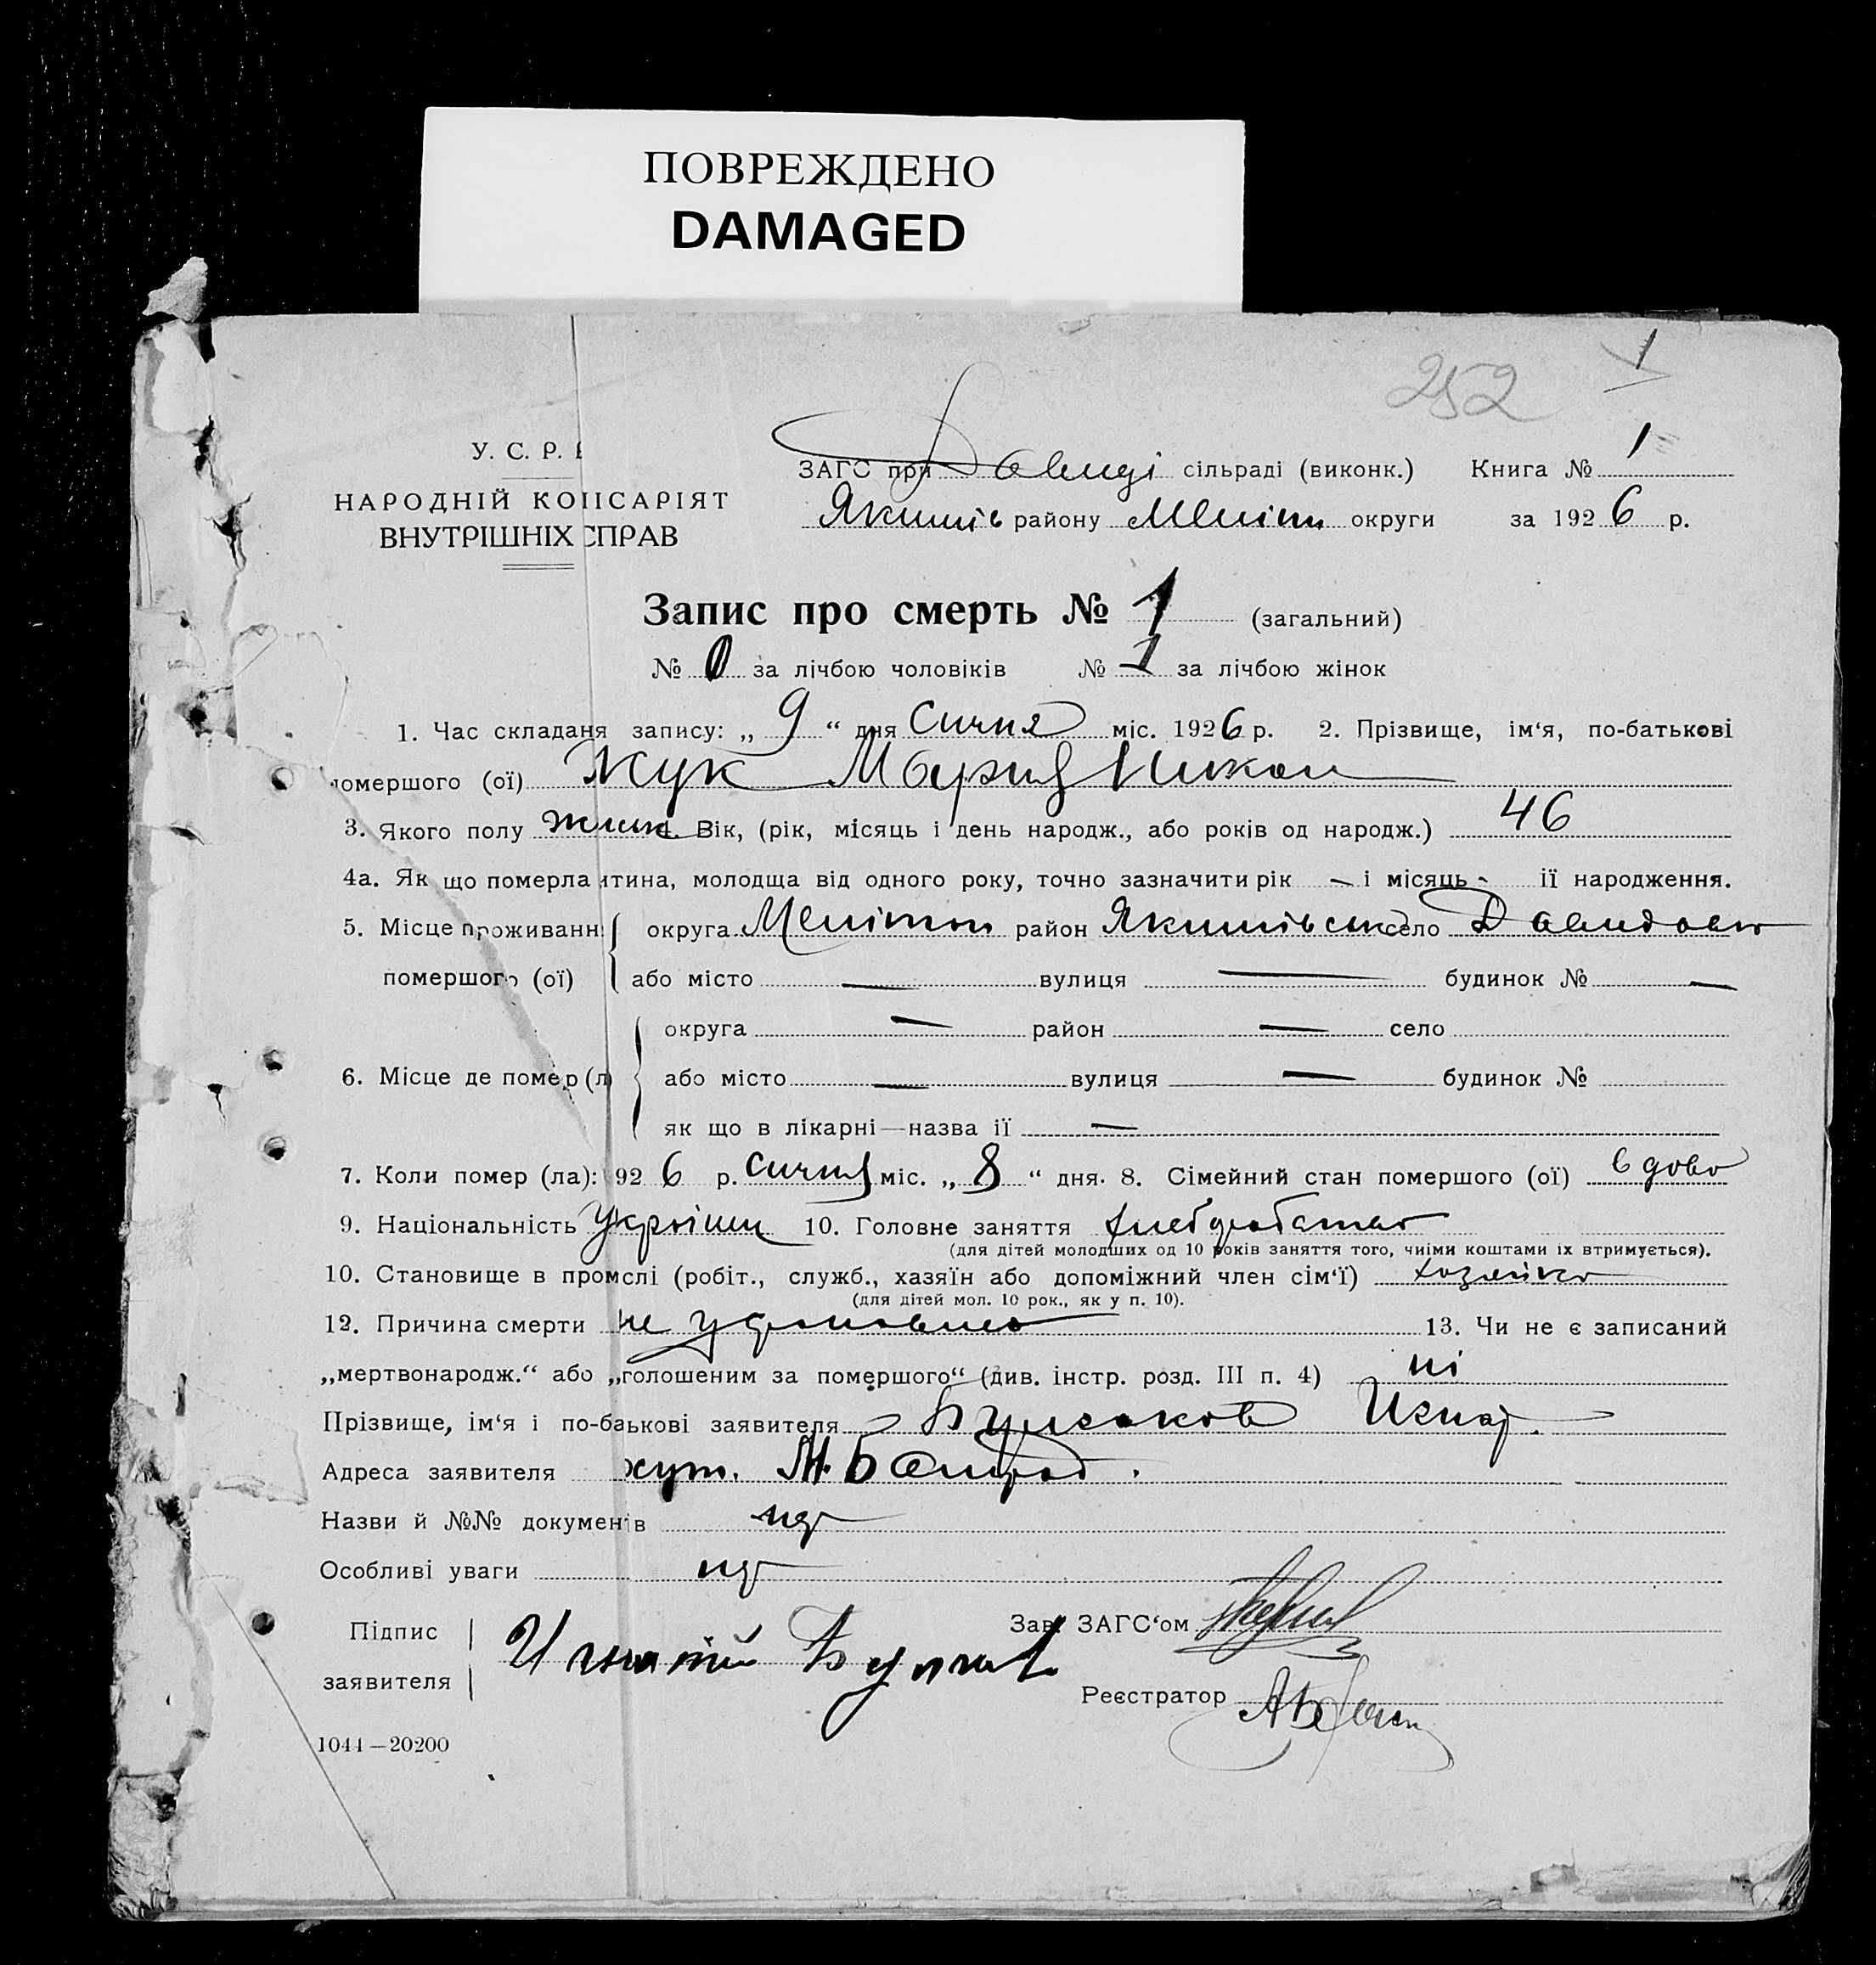 ПОВРЕЖДЕНО
DAMAGED
252 1
У. С. Р. Р
НАРОДНІЙ КОМІСАРІЯТ
ВНУТРІШНІХ СПРАВ
ЗАГС при Давиді сільраді (виконк.) Книга № 1
Якимів району Меліт округи за 1926 р.
Запис про смерть № 1 (загальний)
№ 0 за лічбою чоловіків № 1 за лічбою жінок
1. Час складаня запису: „ 9 “ дня Сичня міс. 1926 р. 2. Прізвище, ім'я, по-батькові
помершого (ої) Жук Мария Никол
3. Якого полу жіноч 4. Вік, (рік, місяць і день народж., або років од народж.) 46
4а. Як що померла дитина, молодща від одного року, точно зазначити рік — і місяць - ії народження.
5. Місце проживання округа Мелітоп район Якимівськ село Давидовк
помершого (ої) або місто — вулиця — будинок № —
округа — район — село
6. Місце де помер (л або місто — вулиця — будинок №
як що в лікарні—назва ії —
7. Коли помер (ла): 1926 р. сичня міс. „ 8 “ дня. 8. Сімейний стан помершого (ої) вдова
9. Національність Україн 10. Головне заняття
(для дітей молодших од 10 років заняття того, чиїми коштами іх втримується).
10. Становище в промслі (робіт., служб., хазяїн або допоміжний член сім'ї) хозяйка
(для дітей мол. 10 рок., як у п. 10).
12. Причина смерти не установлено 13. Чи не є записаний
„мертвонародж.“ або „голошеним за помершого“ (див. інстр. розд. III п. 4) ні
Прізвище, ім'я і по-баькові заявителя Булгаков Игнат.
Адреса заявителя хут. М.
Назви й №№ документів
Особливі уваги
Підпис Зав. ЗАГС'ом
заявителя Игнатий
Реєстратор
1044—20200